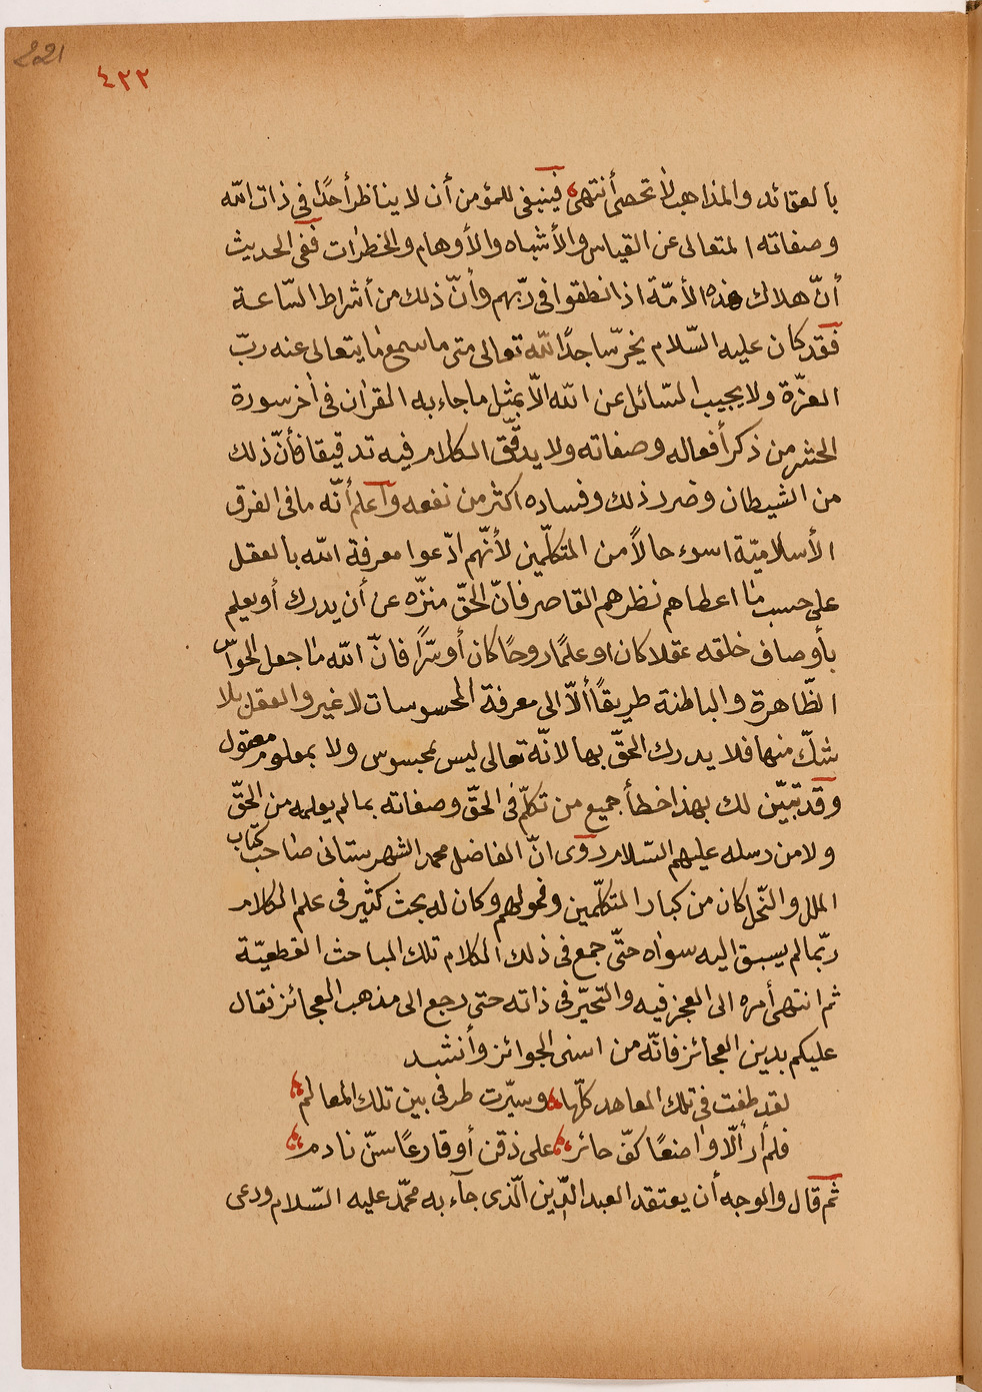 221
٤٣٣
بالعقائد والمذاهب لا تحصى أنتهى فينبغى للمؤمن أن لا يناظر أحدًا فى ذات الله
وصفاته المتعالى عن القياس والأشباه والأوهام والخطرات ففى الحديث
أنّ هلاك هذه الأمّة اذا نطقوا فى ربّهم وأنّ ذلك من أشراط السّاعة
فقد كان عليه السّلام يخرّ ساجدًا لله تعالى متى ما سمع ما يتعالى عنه ربّ
العزّة ولا يجيب السّائل عن الله الاّ بمثل ما جاء به القرآن فى آخر سورة
الحشر من ذكر أفعاله وصفاته ولا يدقّق الكلام فيه تدقيقا فأنّ ذلك
من الشيطان وضرر ذلك وفساده اكثر من نفعه وآعلم أنّه ما فى الفرق
الأسلاميّة اسوء حالاً من المتكلّمين لأنّهم ادّعوا معرفة الله بالعقل
على حسب ما اعطاهم نظرهم القاصر فانّ الحقّ منزّه عن أن يدرك أو يعلم
بأوصاف خلقه عقلا كان او علمًا روحًا كان أو سرًّا فانّ الله ما جعل الحواسّ
الظّاهرة والباطنة طريقًا ألاّ الى معرفة المحسوسات لا غير والعقل بلا
شكّ منها فلا يدرك الحقّ بها لانّه تعالى ليس بمحسوس ولا بمعلوم معقول
وقد تبيّن لك بهذا خطأ جميع من تكلّم فى الحقّ وصفاته بما لم يعلمه من الحقّ
ولا من رسله عليهم السّلام روى انّ الفاضل محمد الشهرستانى صاحب كتاب
الملل والنّحل كان من كبار المتكلّمين وفحولهم وكان له بحث كثير فى علم الكلام
ربّما لم يسبق اليه سواه حتّى جمع فى ذلك الكلام تلك المباحث القطعيّة
ثم انتهى أمره الى العجز فيه والتحيّر فى ذاته حتى رجع الى مذهب العجائز فقال
عليكم بدين العجائز فانّه من اسنى الجوائز وأنشد
لقد طفت فى تلك المعاهد كلّها وسيّرت طرفى بين تلك المعالم
فلم أر ألّا واضعًا كفّ حائر على ذقن أو قارعًا سنّ نادم
ثم قال والوجه أن يعتقد العبد الدّين الّذى جآء به محمّد عليه السّلام ودعى